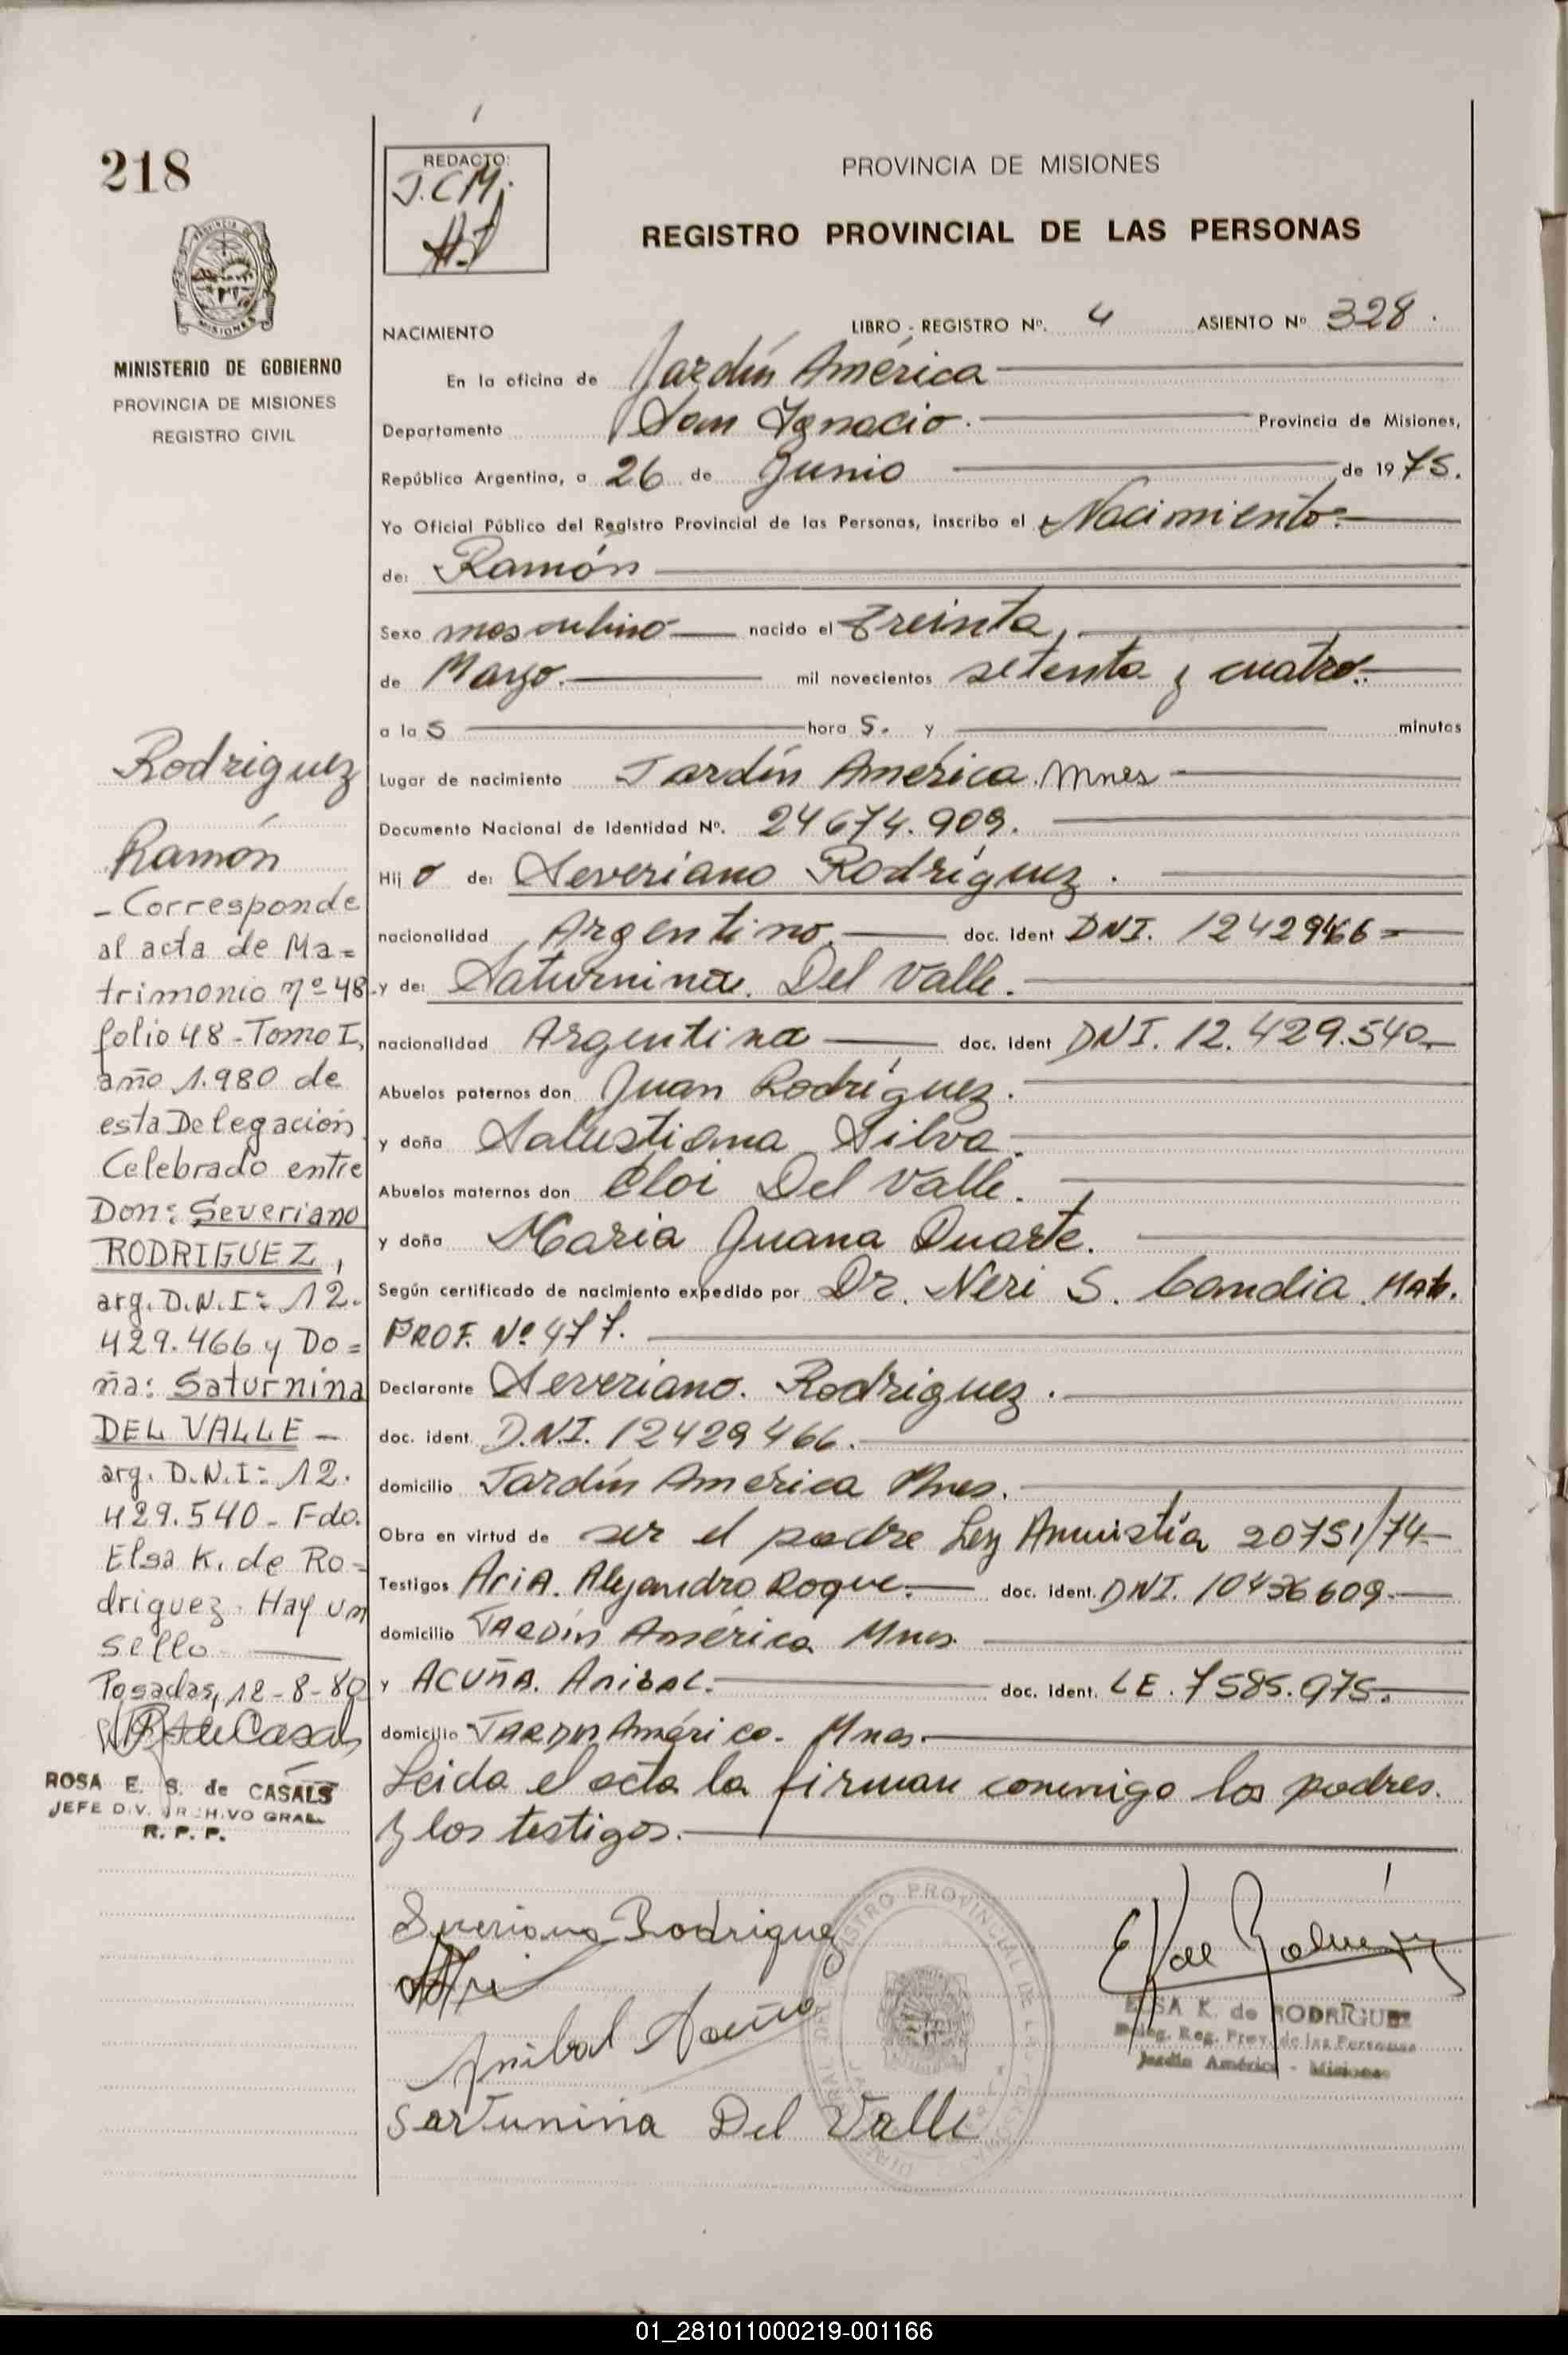 218
MINISTERIO DE GOBIERNO
PROVINCIA DE MISIONES
REGISTRO CIVIL
REDACTO:
J.C.M.
PROVINCIA DE MISIONES
REGISTRO PROVINCIAL DE LAS PERSONAS
NACIMIENTO
LIBRO - REGISTRO Nº. 4 ASIENTO Nº 328.
En la oficina de Jardín América
Departamento San Ignacio. Provincia de Misiones,
República Argentina, a 26 de Junio de 1975.
Yo Oficial Público del Registro Provincial de las Personas, inscribo el Nacimiento
de: Ramón
Sexo masculino nacido el Treinta,
de Marzo. mil novecientos setenta y cuatro.
a la s hora s. y minutos
Lugar de nacimiento Jardín América. Mnes
Documento Nacional de Identidad Nº. 24674.909.
Hij o de: Severiano Rodríguez.
nacionalidad Argentino. doc. ident DNI. 12429466
y de: Saturnina. Del Valle.
nacionalidad Argentina doc. ident DNI. 12.429.540
Abuelos paternos don Juan Rodríguez.
y doña Salustiana Silva.
Abuelos maternos don Eloi Del Valle.
y doña Maria Juana Duarte.
Según certificado de nacimiento expedido por Dr. Neri S. Candia. Mat.
PROF. Nº 477.
Declarante Severiano. Rodriguez.
doc. ident. D.N.I. 12429466.
domicilio Jardín América Mnes.
Obra en virtud de ser el padre Ley Amnistía 20751/74
Testigos AriA. Alejandro Roque. doc. ident. DNI. 10436609.
domicilio JARDín América Mnes
y ACUñA. Anibal. doc. ident. LE. 7585.975.
domicilio JARDIN América. Mnes.
Leida el acta la firman conmigo los padres.
y los testigos.
Rodriguez
Ramón
- Corresponde
al acta de Ma=
trimonio nº 48
folio 48 - Tomo I,
año 1.980 de
esta Delegación
Celebrado entre
Don: Severiano
RODRIGUEZ,
arg. D.N.I: 12.
429.466 y Do=
ña: Saturnina
DEL VALLE -
arg. D.N.I: 12.
429.540 - Fdo.
Elsa K. de Ro=
driguez. Hay un
sello
Posadas, 12-8-80
ROSA E. S. de CASALS
JEFE DIV. ARCHIVO GRAL.
R. P. P.
Severiano Rodriguez
Anibal Acuña
SarTunina Del Valle
ELSA K. de RODRIGUEZ
Deleg. Reg. Prov. de las Personas
Jardín América - Misiones
01_281011000219-001166